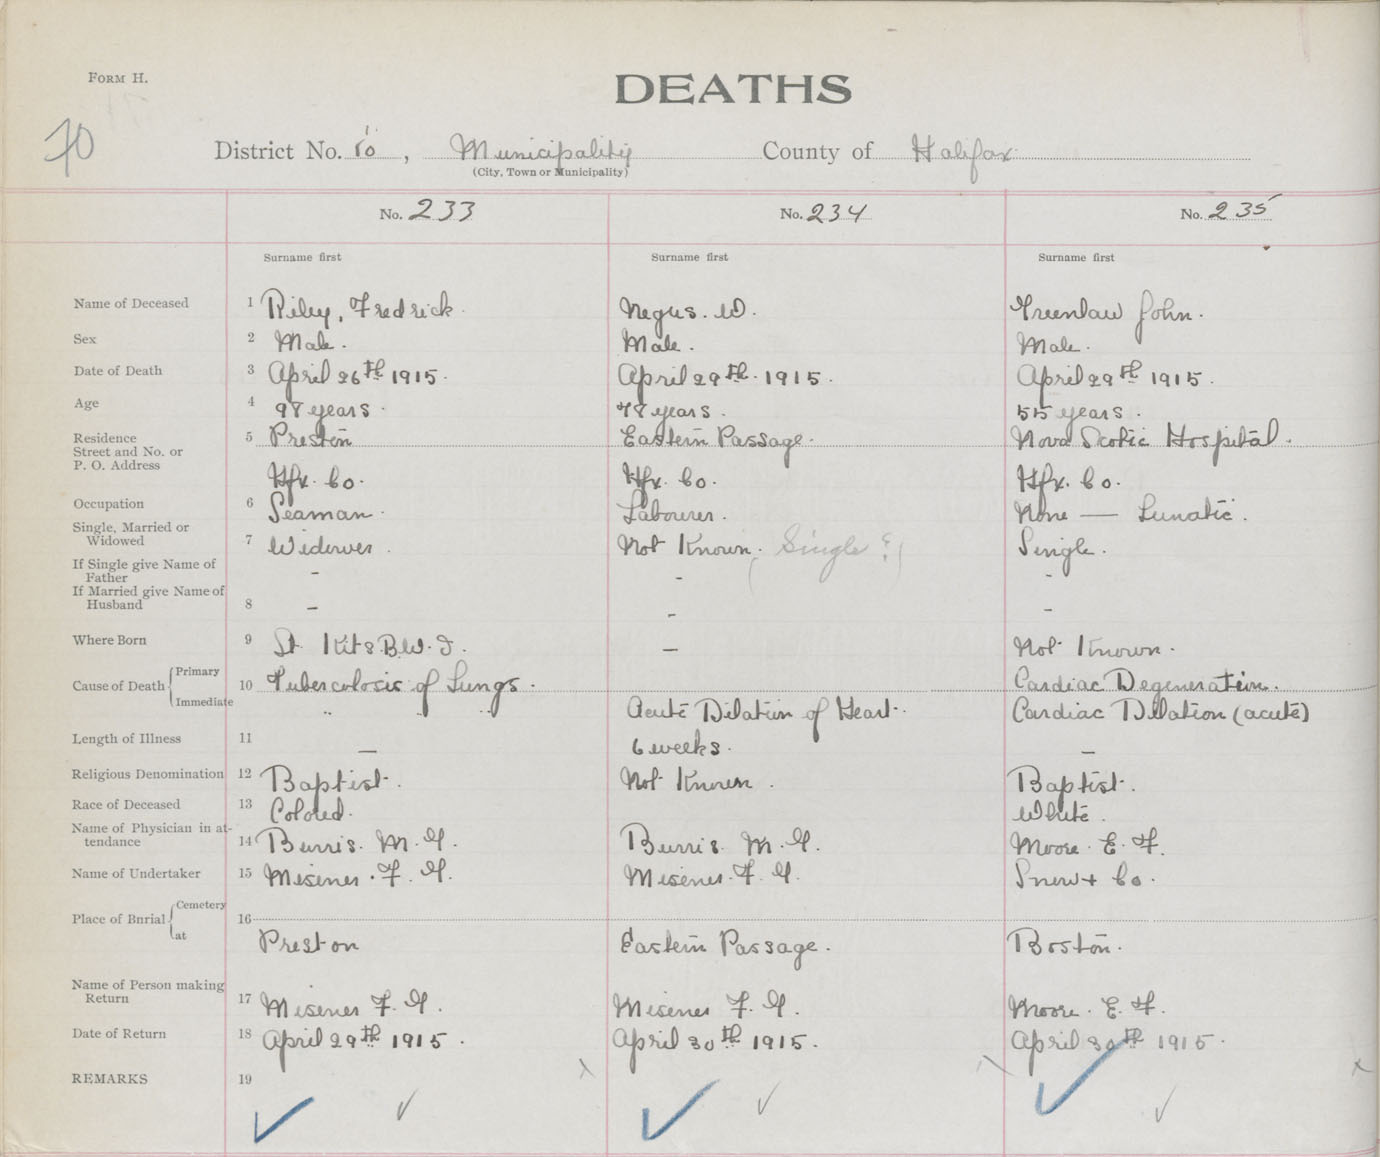 FORM H.
DEATHS
70
District No. 10, Municipality County of Halifax
(City, Town or Municipality)
No. 233 No. 234 No. 235
Surname first Surname first Surname first
Name of Deceased 1 Riley, Fredrick. Negus. W. Greenlaw John.
Sex 2 Male. Male. Male.
Date of Death 3 April 26th 1915. April 29th. 1915. April 29th 1915.
Age 4 98 years. 78 years. 55 years.
Residence 5 Preston Eastern Passage. Nova Scotic Hospital.
Street and No. or
P. O. Address Hfx. Co. Hfx. Co. Hfx. Co.
Occupation 6 Seaman. Labourer. None — Lunatic.
Single, Married or
Widowed 7 Widower. Not Known. (Single?) Single.
If Single give Name of
Father - - -
If Married give Name of
Husband 8 - - -
Where Born 9 St Kits B.W.I. — Not Known.
Cause of Death Primary 10 Tubercolosis of Lungs. Cardiac Degeneration.
Immediate " " " Acute Dilation of Heart. Cardiac Dilation (acute)
Length of Illness 11 — 6 weeks. —
Religious Denomination 12 Baptist. Not Known. Baptist.
Race of Deceased 13 Colored. White.
Name of Physician in at-
tendance 14 Burris. M. G. Burris. M. G. Moore. E. F.
Name of Undertaker 15 Misener. F. G. Misener. F. G. Snow + Co.
Place of Burial Cemetery 16
at Preston Eastern Passage. Boston.
Name of Person making
Return 17 Misener F. G. Misener F. G. Moore. E. F.
Date of Return 18 April 29th 1915. April 30th 1915. April 30th 1915.
REMARKS 19